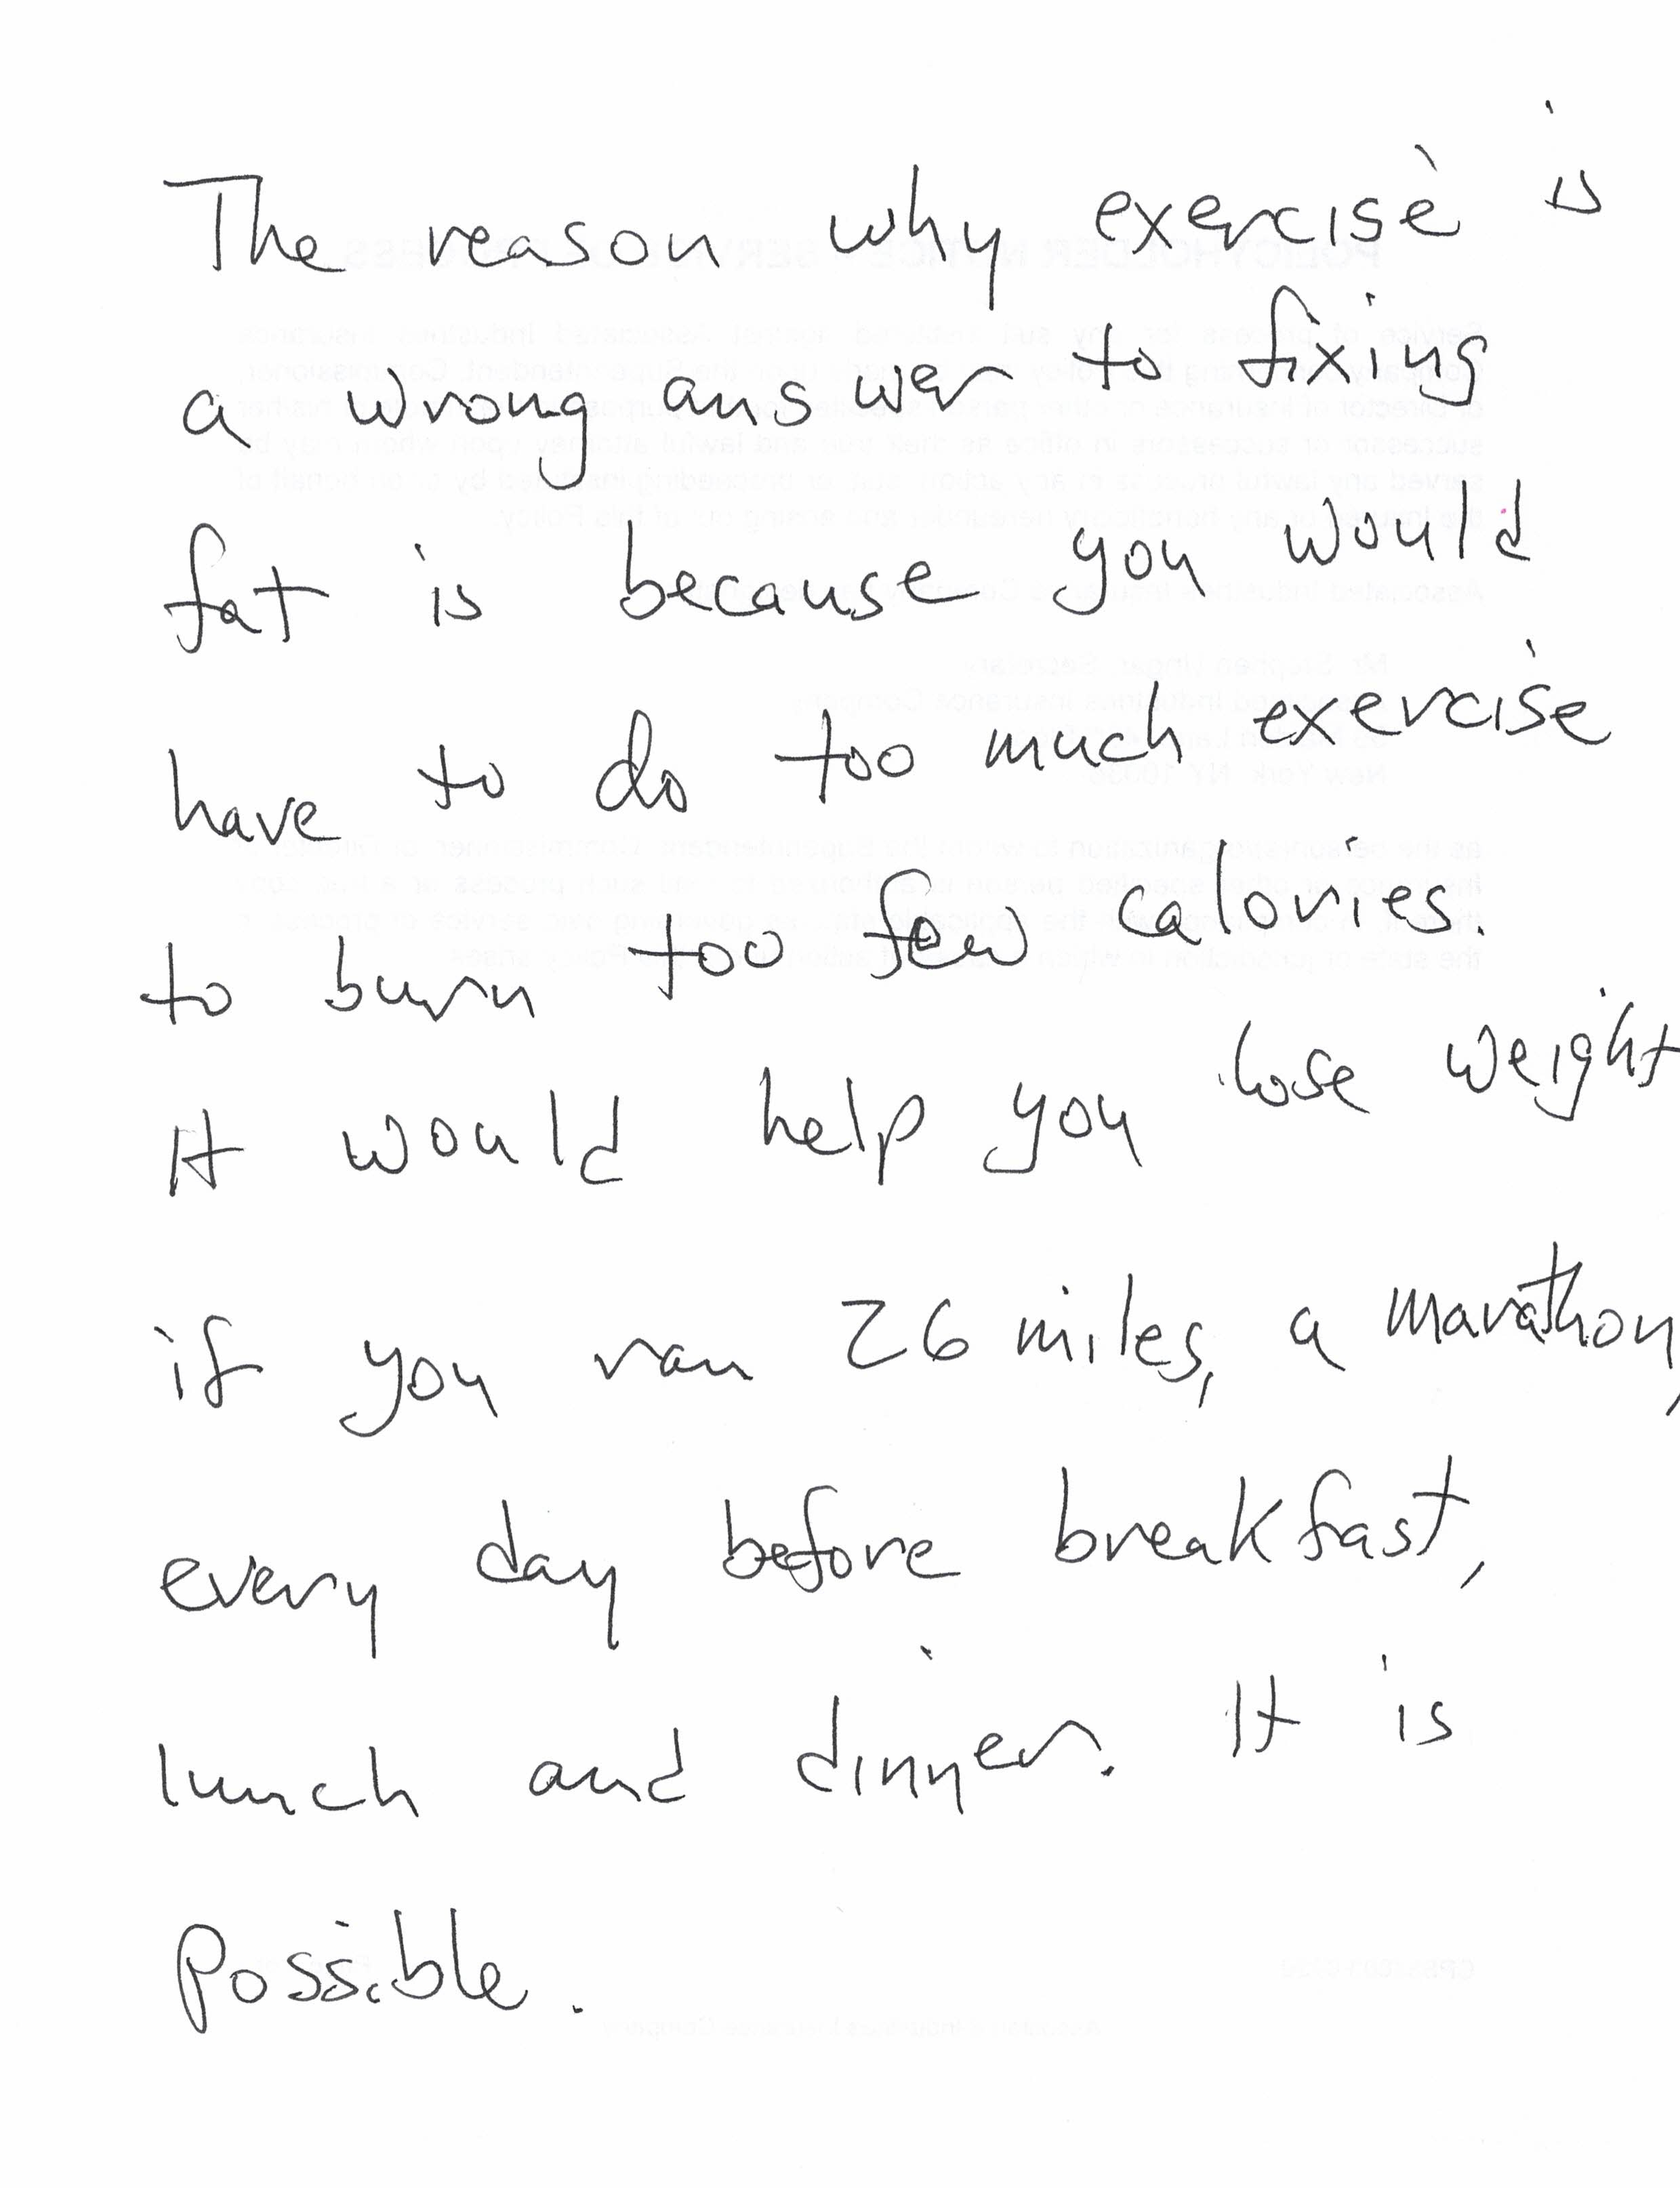 The reason why exercise is
a wrong answer to fixing
fat is because you would
have to do too much exercise
to burn too few calories.
It would help you lose weight
if you ran 26 miles, a marathon,
every day before breakfast,
lunch and dinner. It is
possible.